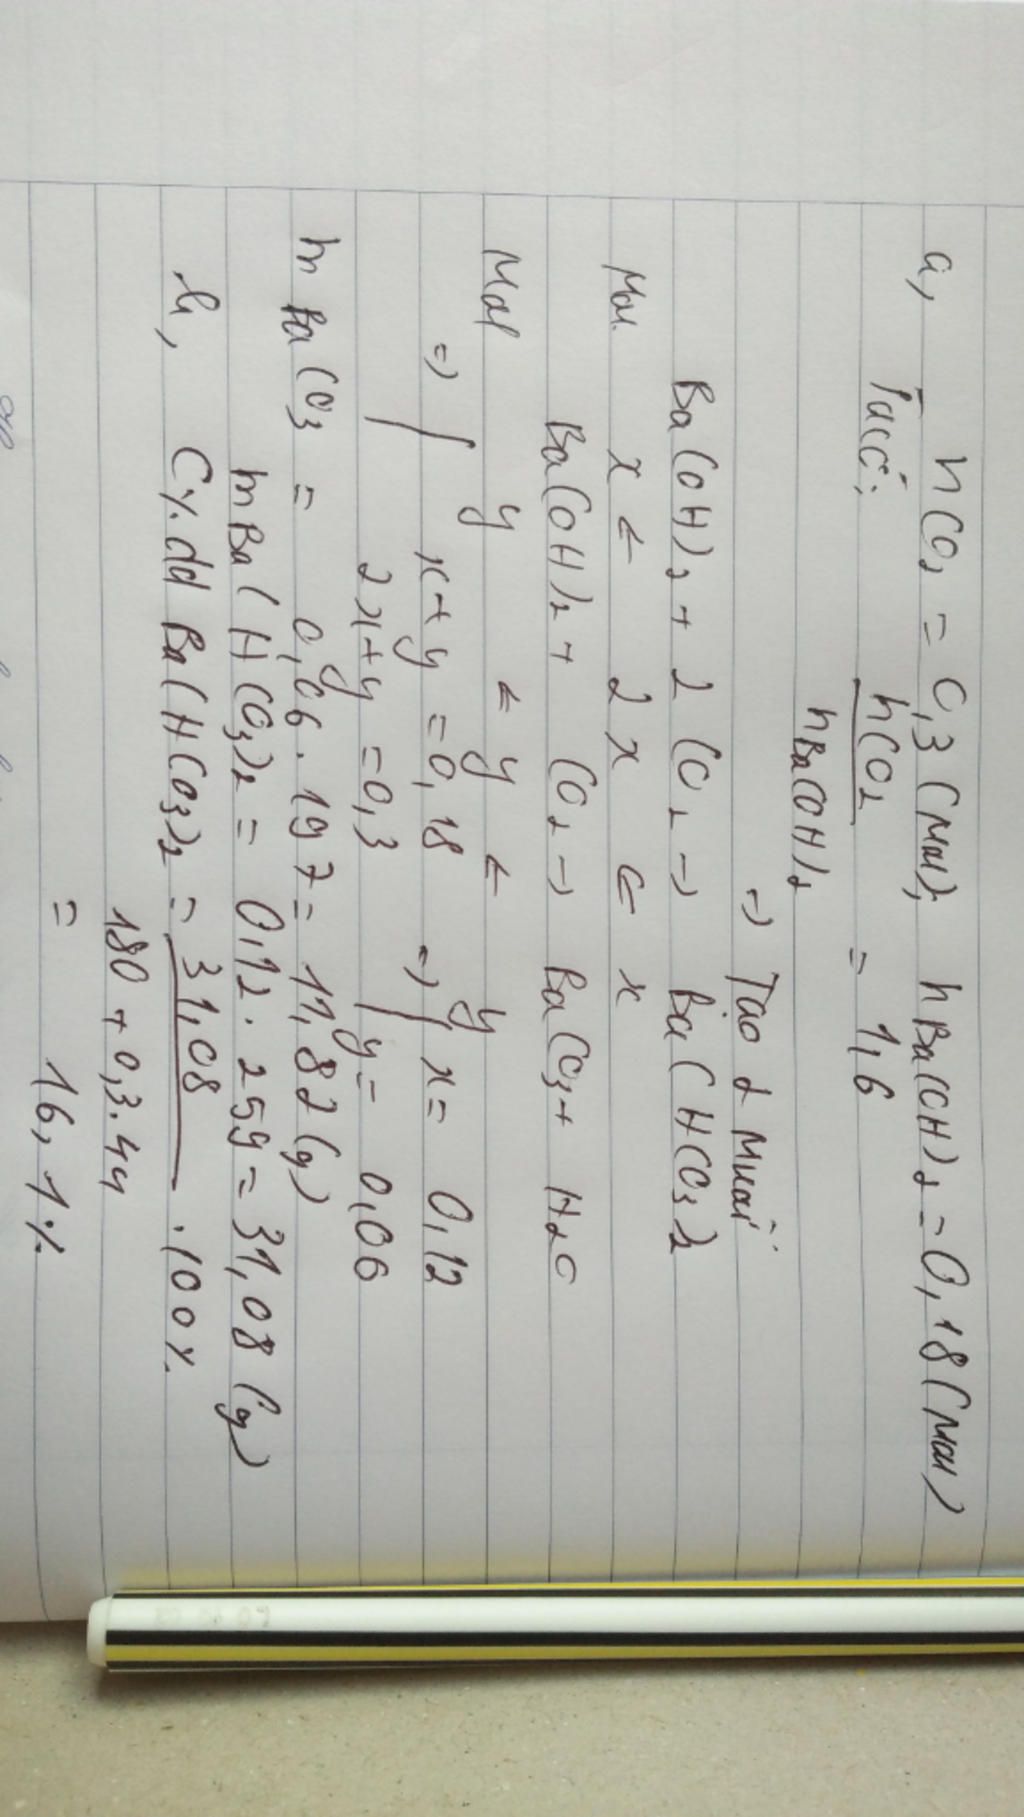 a, nCO₂ = 0,3 (mol); nBa(OH)₂ = 0,18 (mol)
Ta có: nCO₂ / nBa(OH)₂ = 1,6
=> Tạo 2 muối
Ba(OH)₂ + 2CO₂ -> Ba(HCO₃)₂
Mol x <- 2x <- x
Ba(OH)₂ + CO₂ -> BaCO₃ + H₂O
Mol y <- y <- y
=> { x+y = 0,18 => { x = 0,12
2x+y = 0,3 y = 0,06
mBaCO₃ = 0,06 . 197 = 11,82 (g)
mBa(HCO₃)₂ = 0,12 . 259 = 31,08 (g)
b, C% dd Ba(HCO₃)₂ = 31,08 / 180 + 0,3.44 . 100%
= 16,1%